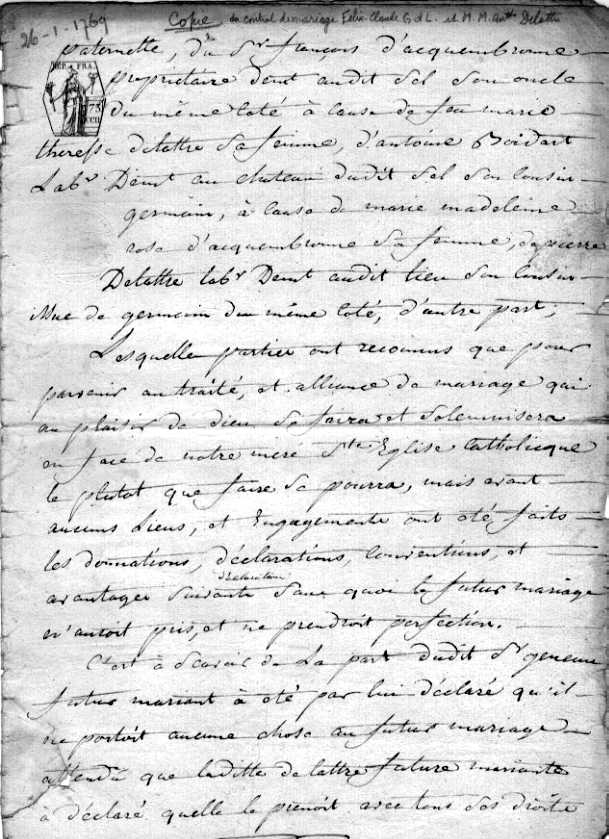 26-1-1769
Copie du contrat de mariage Félix-Claude G d L. et M. M. Delattre
REP. FRA.
75
paternelle, du Sr. françois d'acquembronne
propriétaire demt audit Sel son oncle
du même Coté à cause de feu marie
theresse delattre Sa femme, d'antoine Boidart
Labr Demt au chateau dudit Sel Son Cousin
germain, à Cause de marie madeleine
rose d'acquembronne Sa femme, de pierre
Delattre labr Demt audit lieu Son Cousin
issue de germain du même Coté, d'autre part;
Lesquelle partier ont reconnus que pour
parvenir au traité, et alliance de mariage qui
au plaisir de dieu Se fera et Solemnisera
en face de notre mere Ste Eglise Catholicque
le plutot que faire Se pourra, mais avant
aucuns Liens, et Engagements ont été faits
les donnations, déclarations, Conventions, et
avantages Suivants Sans quoi le futur mariage
n'auroit pris, et ne prendroit perfection.
C'est à Scavoir de La part dudit Sr
futur mariant à été par lui déclaré qu'il
ne portoit aucune chose au futur mariage
attendu que laditte delattre future mariante
à déclaré quelle le prenoit avec tous Ses droits